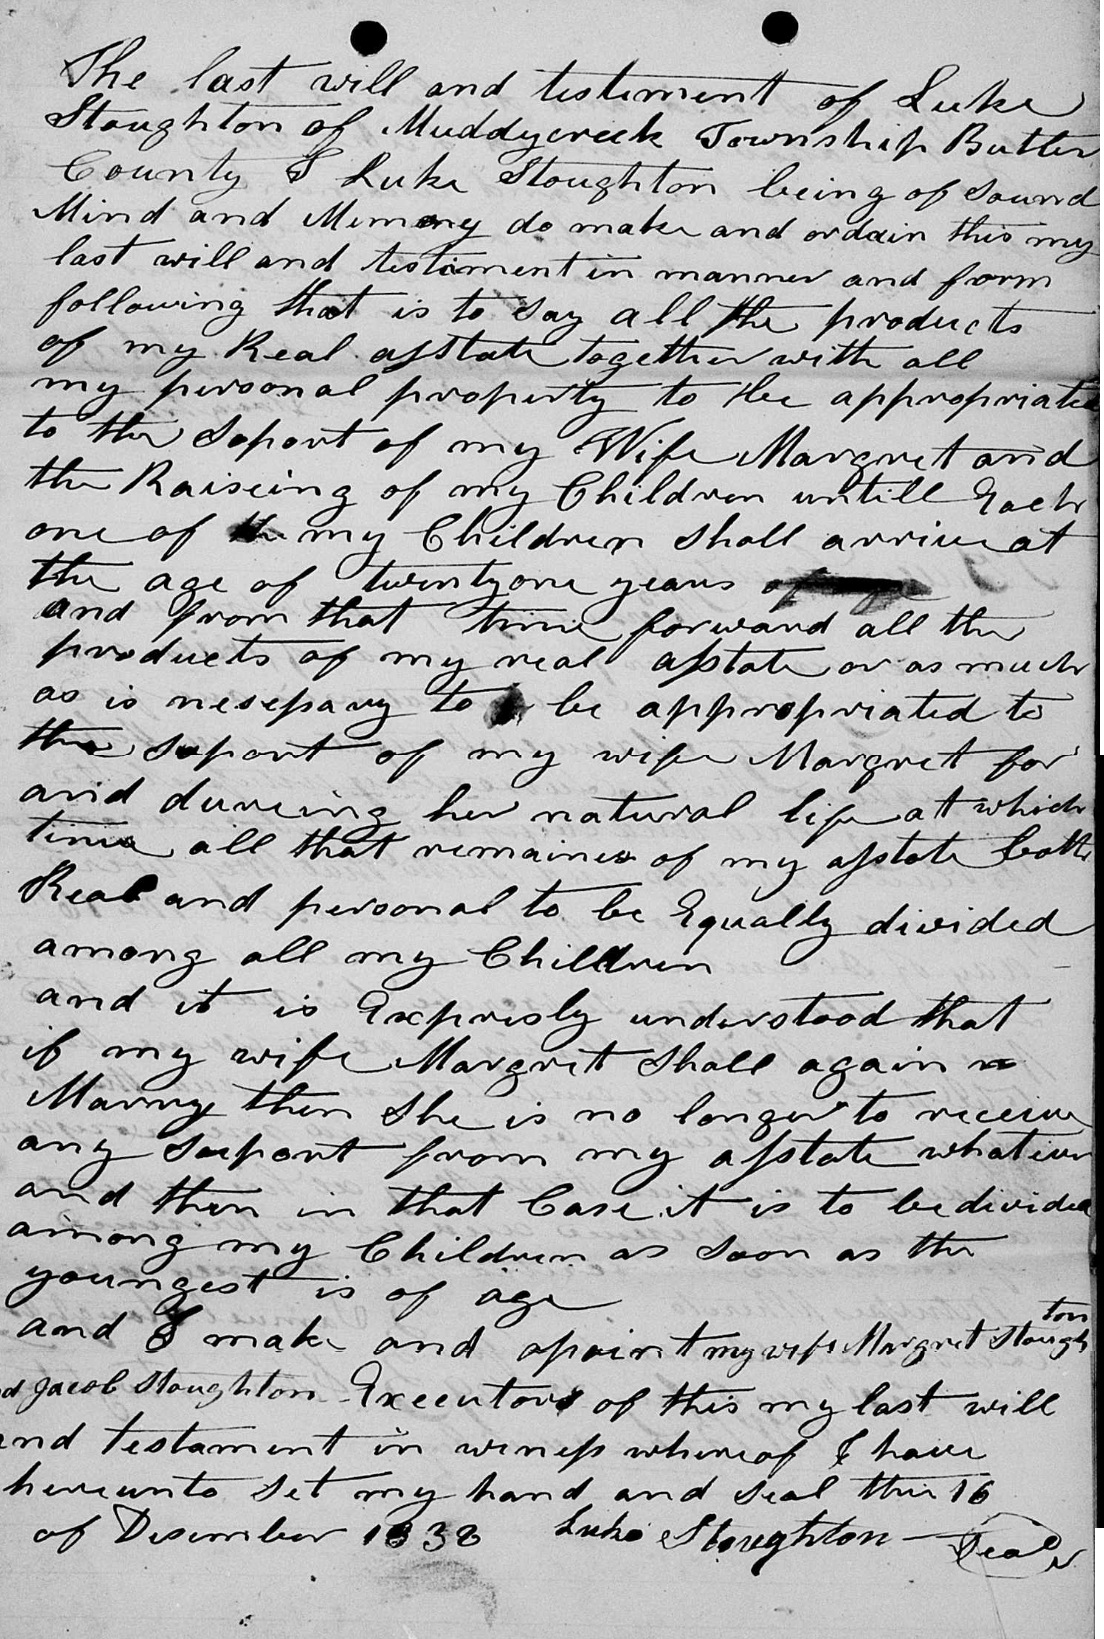 The last will and testement of Luke
Stoughton of Muddycreek Township Butler
County I Luke Stoughton being of sound
Mind and Memory do make and ordain this my
last will and testiment in manner and form
following that is to say all the products
of my Real asstate together with all
my personal property to be appropriated
to the soport of my Wife Margret and
the Raiseing of my Children untill Each
one of my Children shall arrive at
the age of twentyone years
and from that time forward all the
products of my real asstate or as much
as is nesessary to be appropriated to
the suport of my wife Margret for
and dureing her natural life at which
time all that remaines of my asstate both
Real and personal to be Equally divided
among all my Children
and it is Expresly understood that
if my wife Margret shall again
Marry then she is no longer to receive
any suport from my asstate whatever
and then in that Case it is to be divided
among my Children as soon as the
youngest is of age
and I make and apoint my wife Margret Stoughton
and Jacob Stoughton Executors of this my last will
and testament in witness whereof I have
hereunto set my hand and seal this 16
of Desember 1838 Luke Stoughton Seal